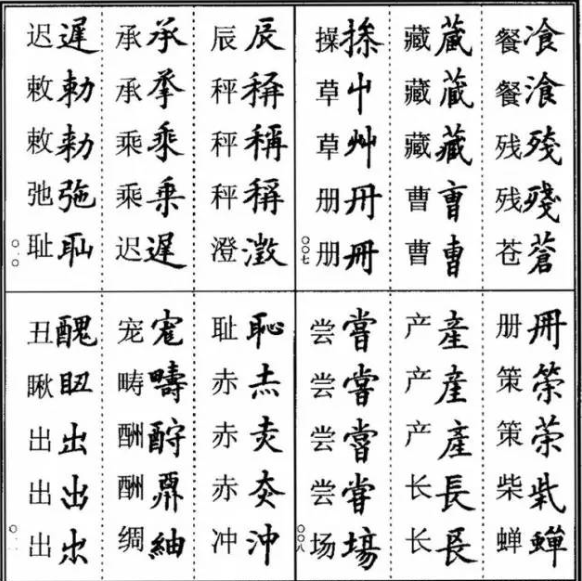 餐飡 餐湌 残残 残殘 苍蒼
藏蔵 藏蔵 藏藏 曹曺 曹曹
操掺 草屮 草艸 册冊 册冊
〇〇七
册冊 策 策 柴 蝉蟬
产産 产産 产產 长長 长
尝嘗 尝甞 尝嘗 尝 场塲
〇〇八
辰辰 秤 秤稱 秤稱 澄澂
承承 承 乘乗 乘乗 迟遲
迟遲 敕勅 敕勑 弛 耻耻
〇一〇
耻恥 赤 赤 赤 冲沖
宠 畴疇 酬酧 酬 绸紬
丑醜 瞅 出出 出 出